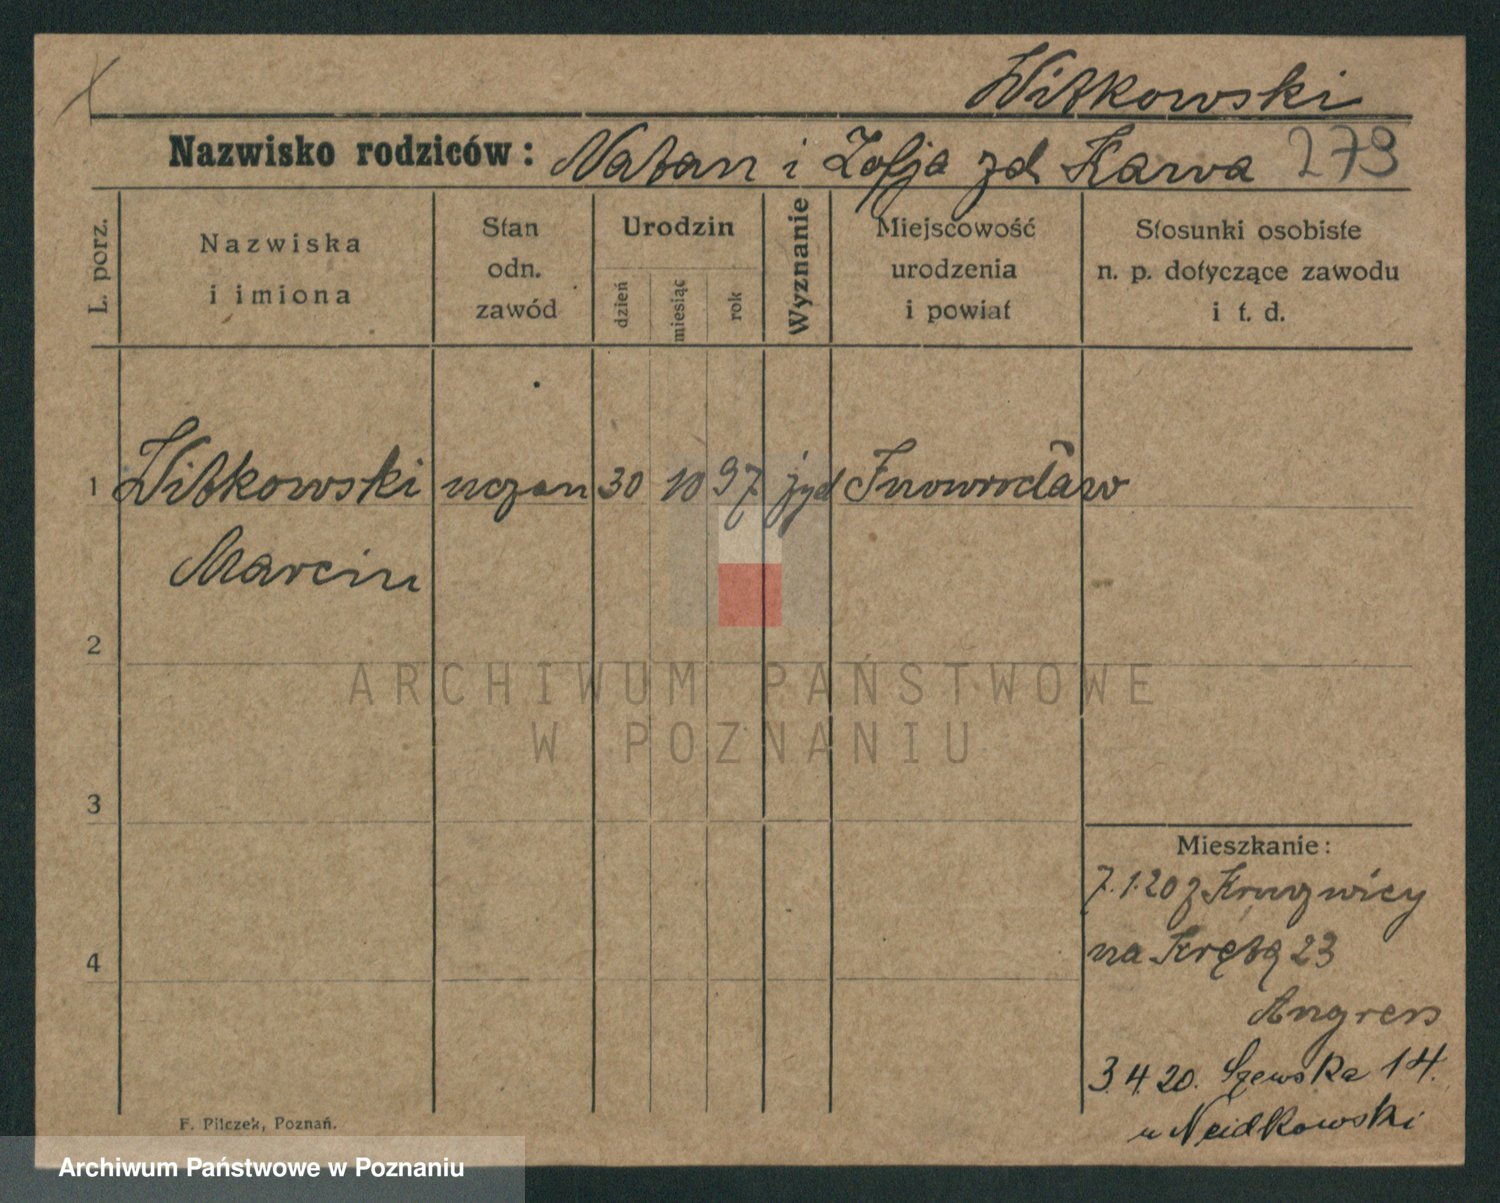 Witkowski
Nazwisko rodziców: Natan i Zofja zd Karwa 273
L. porz.
Nazwiska
i imiona
Stan
odn.
zawód
Urodzin
dzień
miesiąc
rok
Wyznanie
Miejscowość
urodzenia
i powiat
Stosunki osobiste
n. p. dotyczące zawodu
i t. d.
1 Witkowski uczan 30 10 97 żyd Inowrocław
Marcin
2
3
4
Mieszkanie:
7.1.20 z Kruszwicy
na Krętą 23
3.4.20. Szewska 14.
u Neidkowski
F. Pilczek, Poznań.
ARCHIWUM PAŃSTWOWE
W POZNANIU
Archiwum Państwowe w Poznaniu